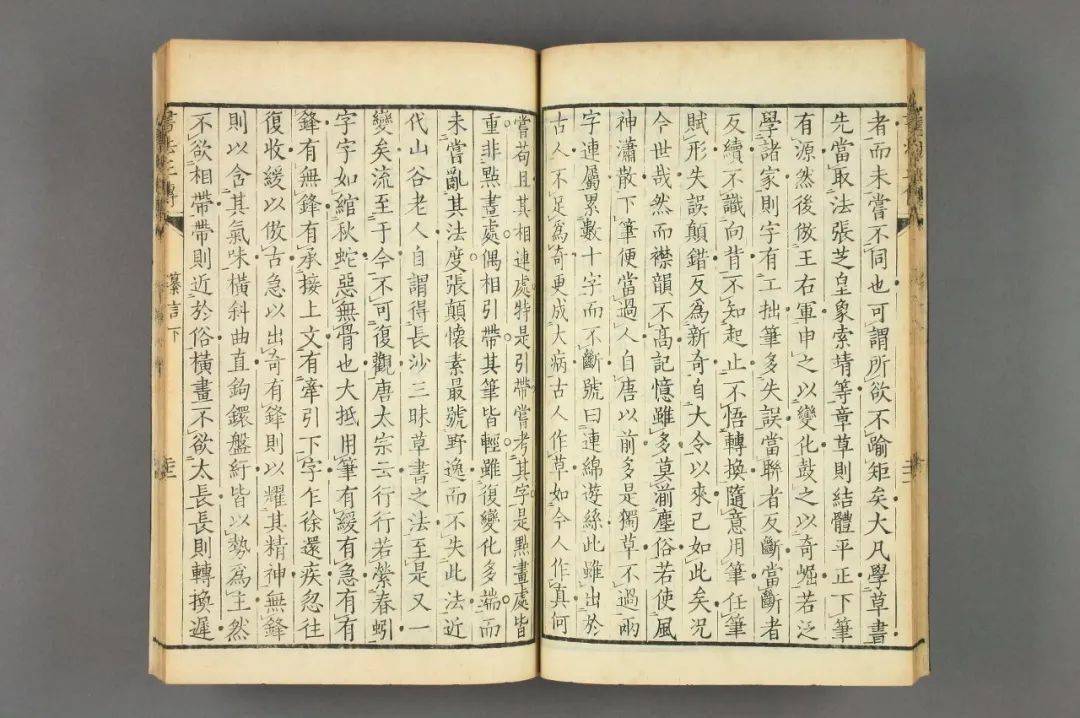 者而未嘗不同也可謂所欲不踰矩矣大凡學草書
先當取法張芝皇象索靖等章草則結體平正下筆
有源然後倣王右軍申之以變化鼓之以奇崛若泛
學諸家則字有工拙筆多失誤當聯者反斷當斷者
反續不識向背不知起止不悟轉換隨意用筆任筆
賦形失誤顛錯反爲新奇自大令以來已如此矣況
今世哉然而襟韻不髙記憶雖多莫湔塵俗若使風
神瀟散下筆便當過人自唐以前多是獨草不過兩
字連屬累數十字而不斷號曰連綿遊絲此雖出於
古人不足爲奇更成大病古人作草如今人作真何
嘗苟且其相連處特是引帶嘗考其字是點畫處皆
重非點畫處偶相引帶其筆皆輕雖復變化多端而
未嘗亂其法度張顛懷素最號野逸而不失此法近
代山谷老人自謂得長沙三昧草書之法至是又一
變矣流至于今不可復觀唐太宗云行行若縈春蚓
字字如綰秋蛇惡無骨也大抵用筆有緩有急有有
鋒有無鋒有承接上文有牽引下字乍徐還疾忽往
復收緩以倣古急以出奇有鋒則以耀其精神無鋒
則以含其氣味橫斜曲直鉤鐶盤紆皆以勢爲主然
不欲相帶帶則近於俗橫畫不欲太長長則轉換遲
書法正傳
纂言下